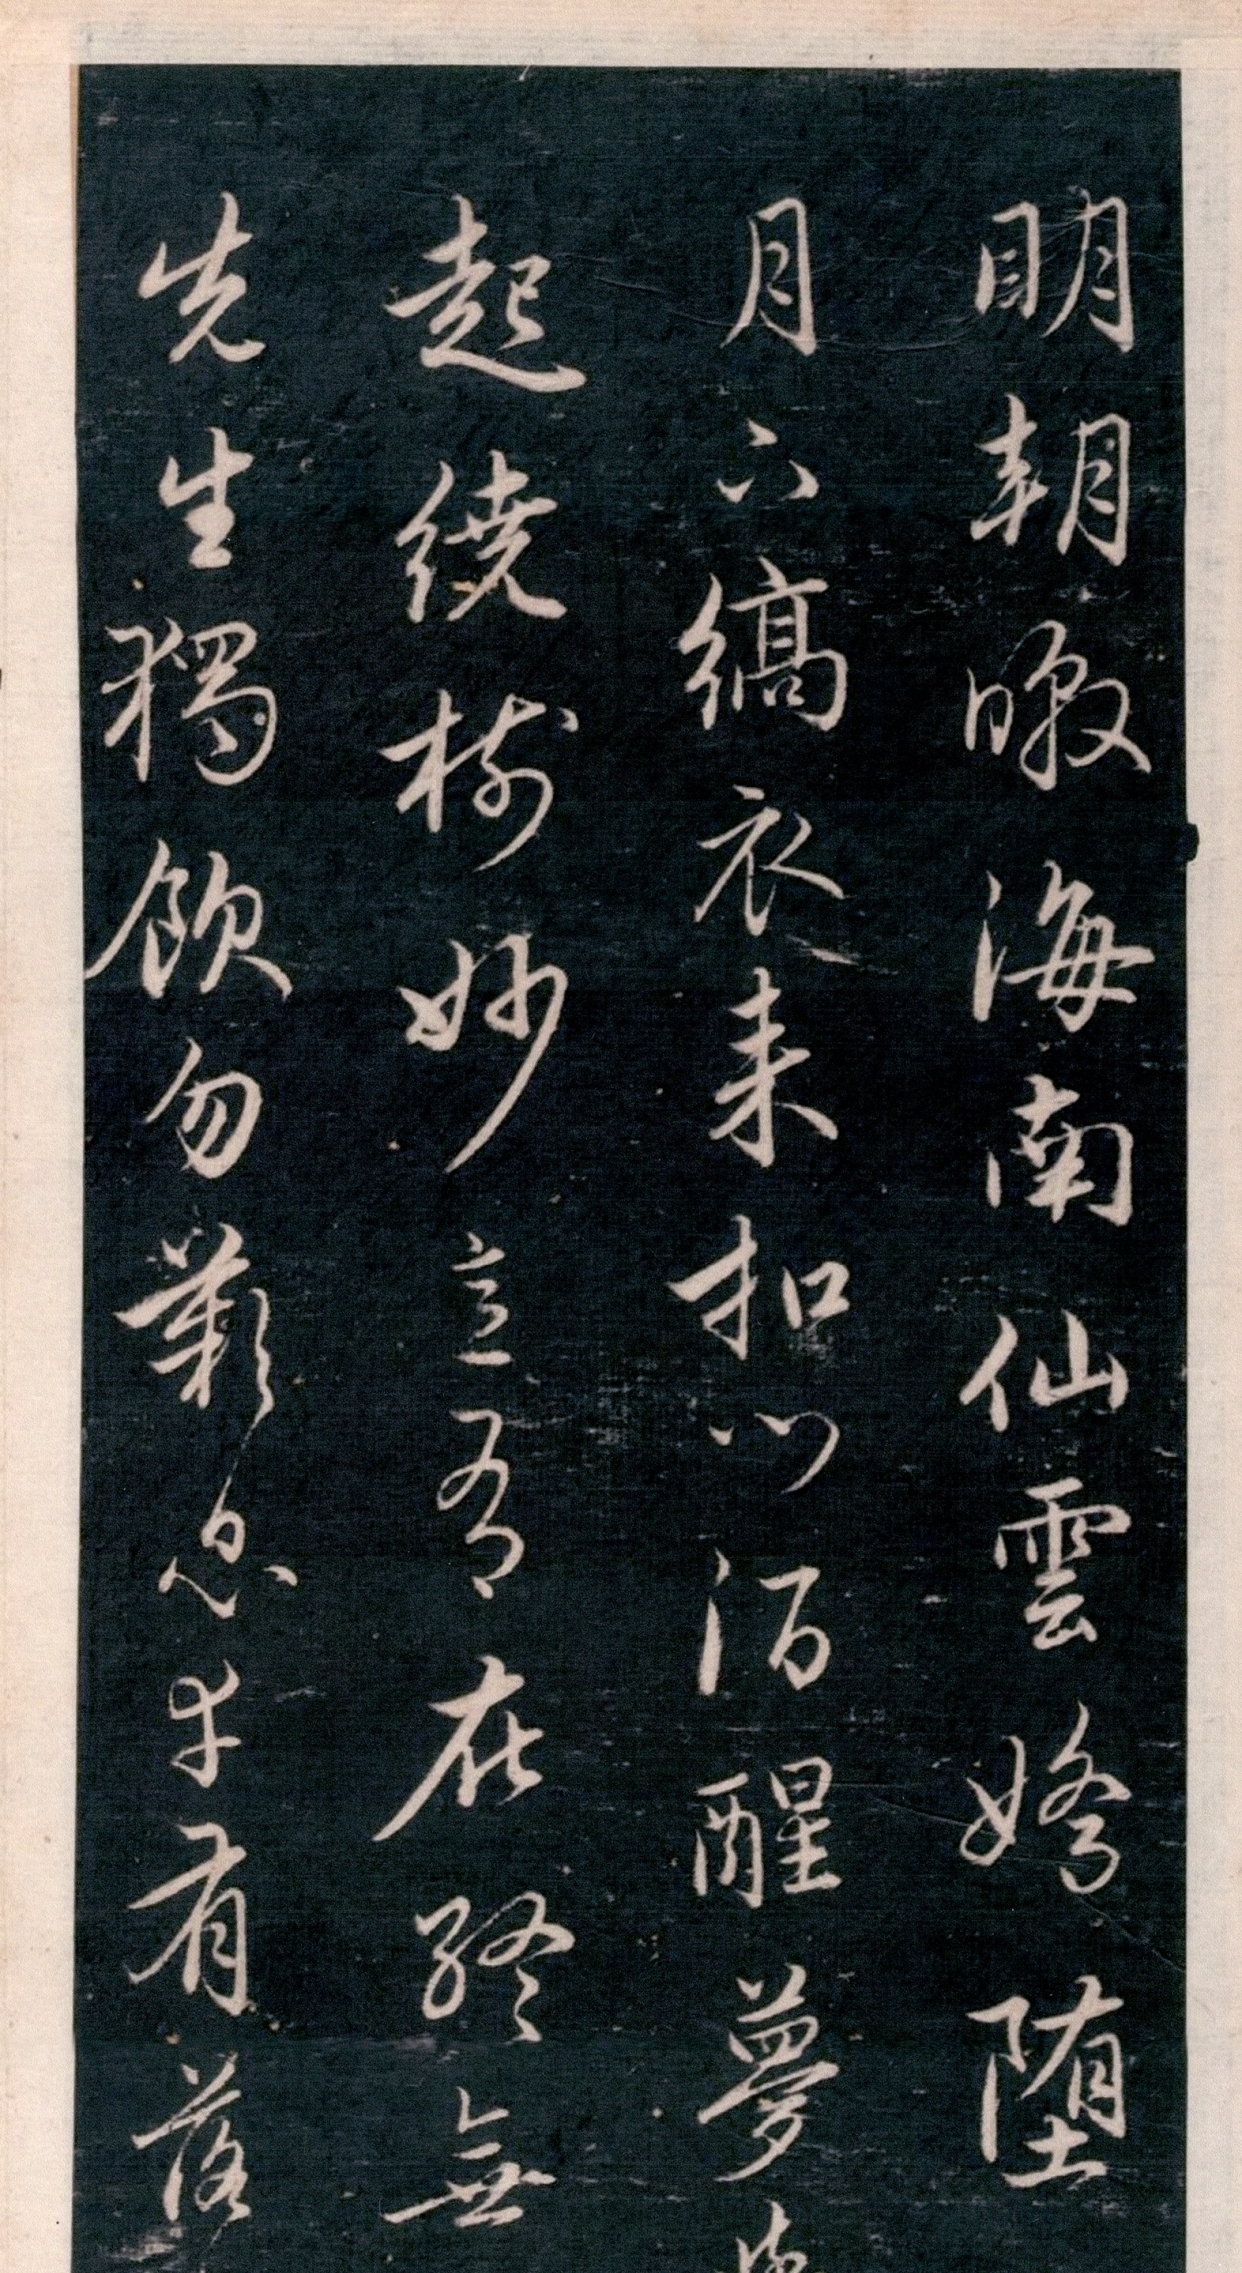 明朝暾海南仙雲嬌墮
月下縞衣来扣門酒醒夢
起繞樹妙意有在終無
先生獨飲勿歎息幸有落